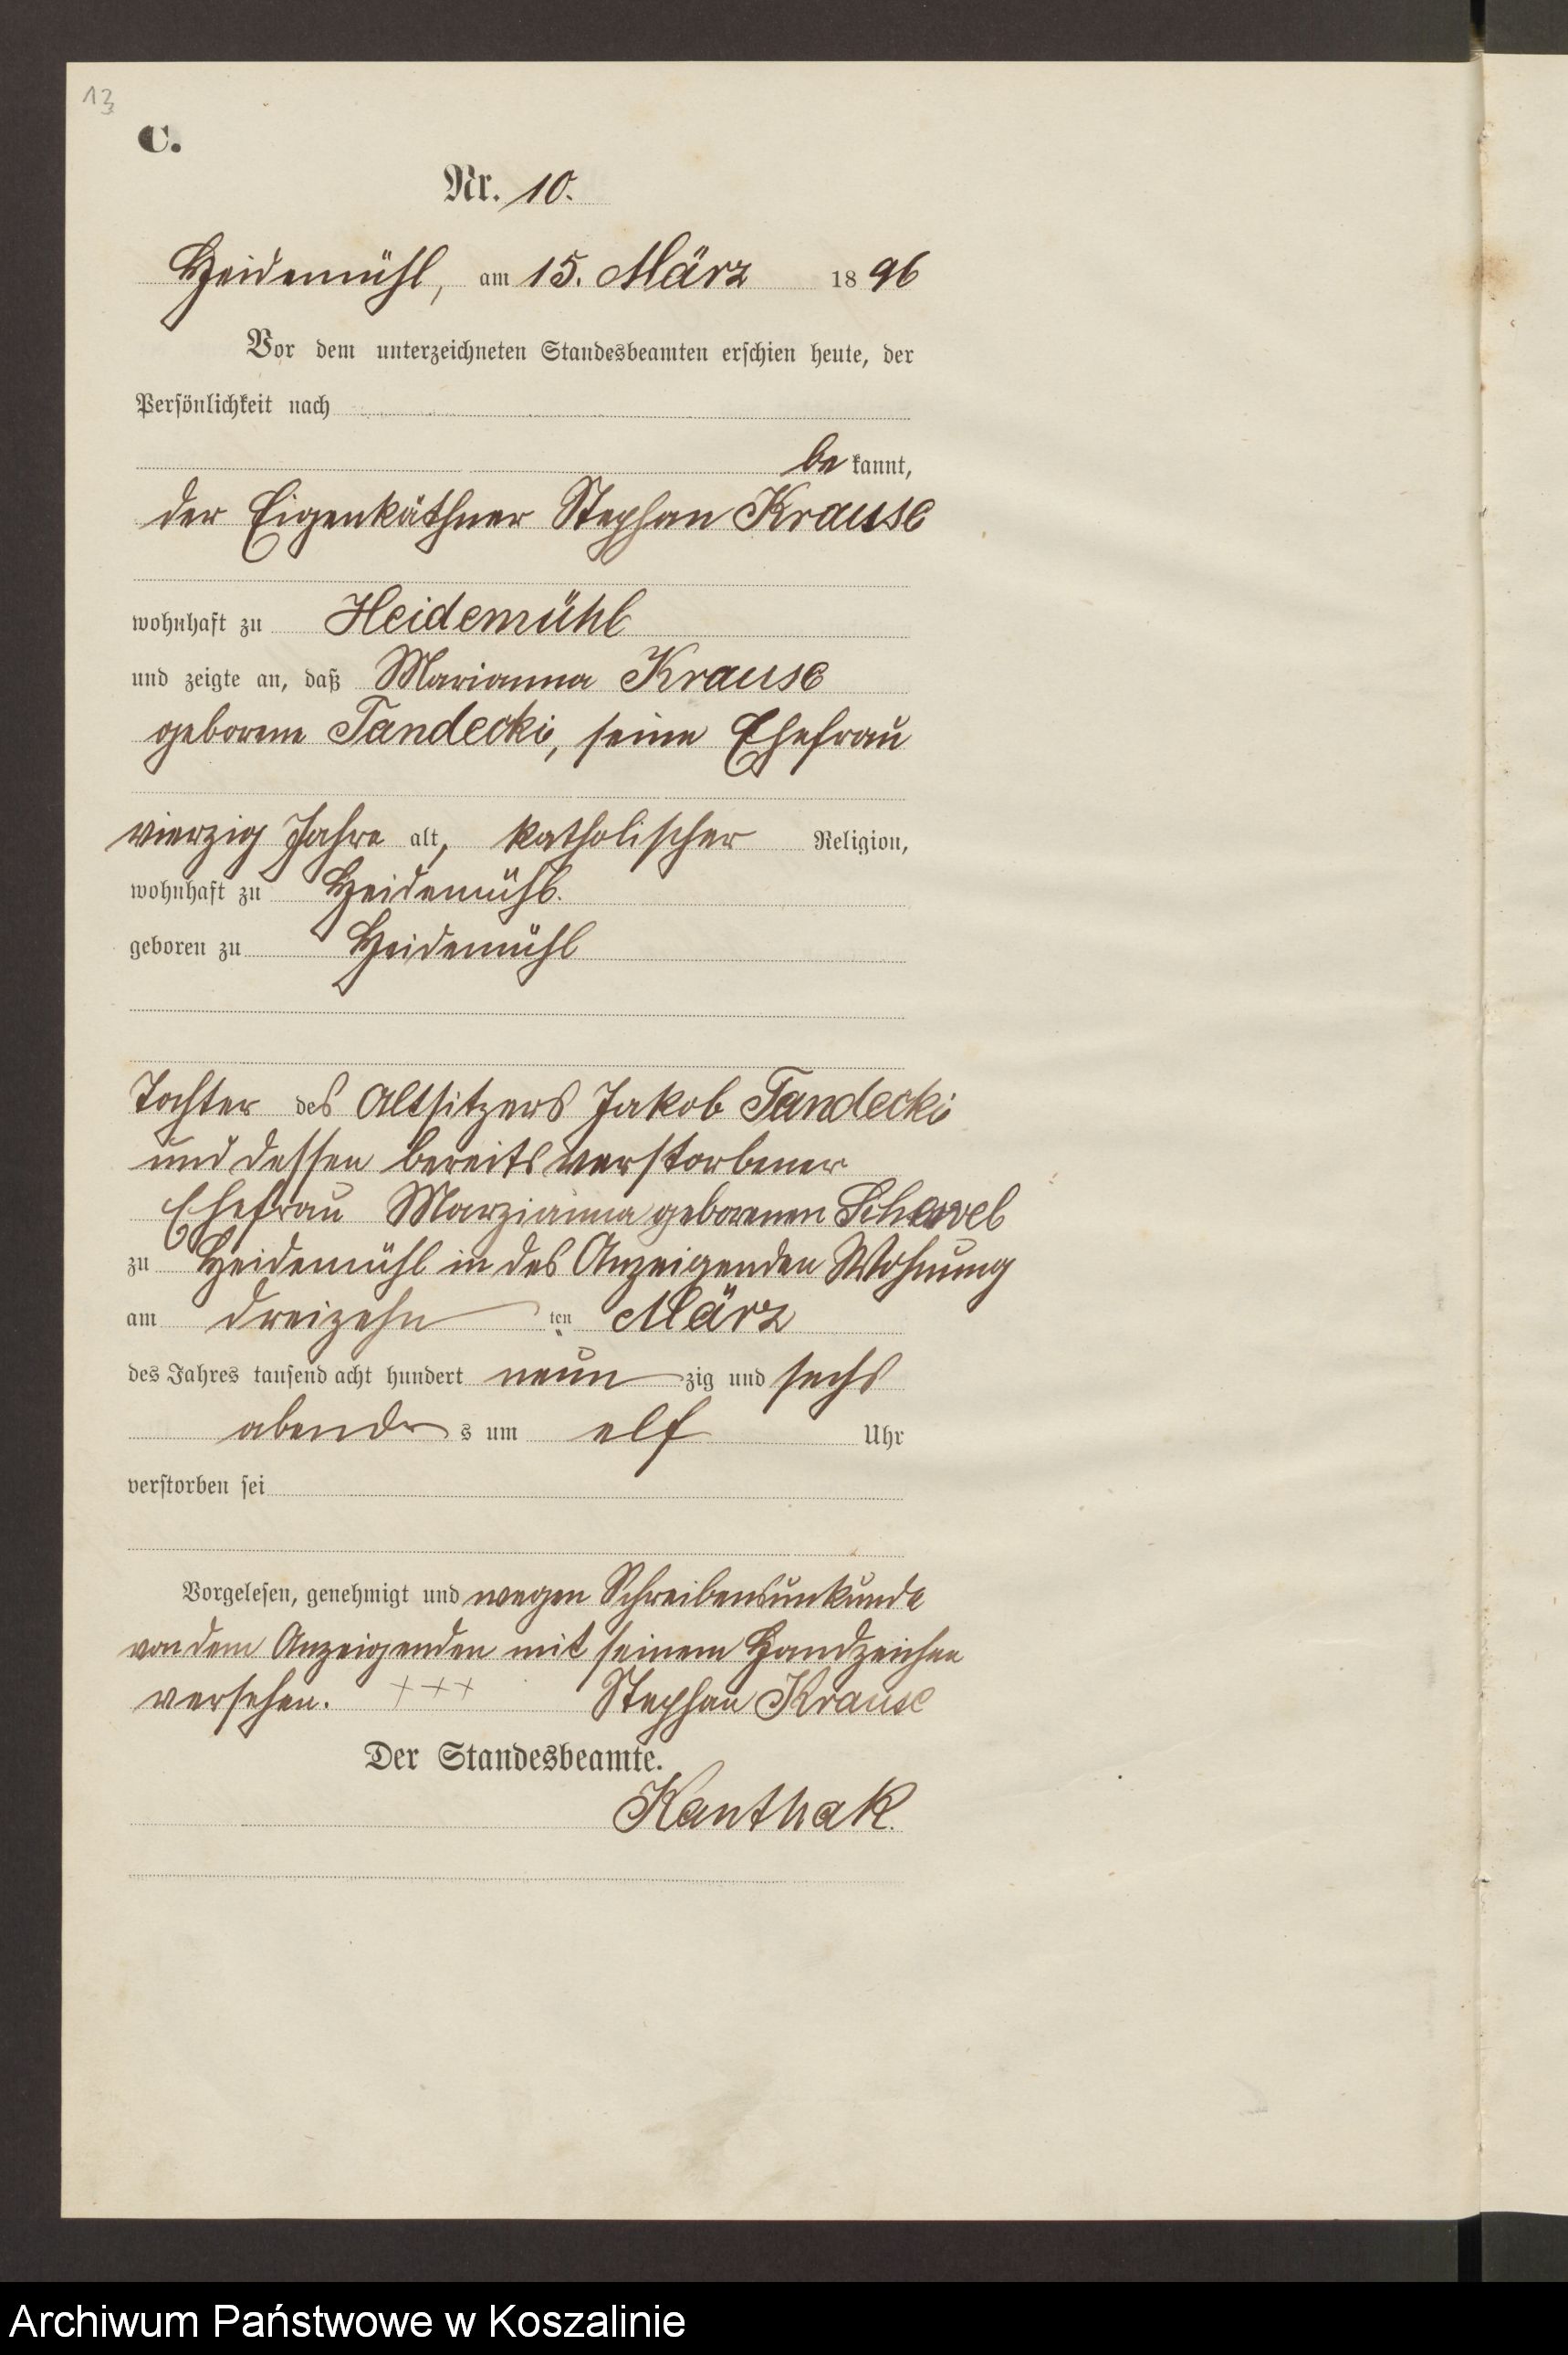 13
C.
Nr. 10.
Heidemühl, am 15. März 1896
Vor dem unterzeichneten Standesbeamten erschien heute, der
Persönlichkeit nach
be kannt,
der Eigenkäthner Stephan Krause
wohnhaft zu Heidemühl
und zeigte an, daß Marianna Krause
geborene Tandecki, seine Ehefrau
vierzig Jahre alt, katholischer Religion,
wohnhaft zu Heidemühl.
geboren zu Heidemühl
Tochter des Altsitzers Jakob Tandecki
und dessen bereits verstorbener
Ehefrau Marzianna geborenen
zu Heidemühl in des Anzeigenden Wohnung
am dreizehn ten März
des Jahres tausend acht hundert neun zig und sechs
abends um elf Uhr
verstorben sei
Vorgelesen, genehmigt und wegen Schreibensunkunde
von dem Anzeigenden mit seinem Handzeichen
versehen. +++ Stephan Krause
Der Standesbeamte.
Kanthak.
Archiwum Państwowe w Koszalinie